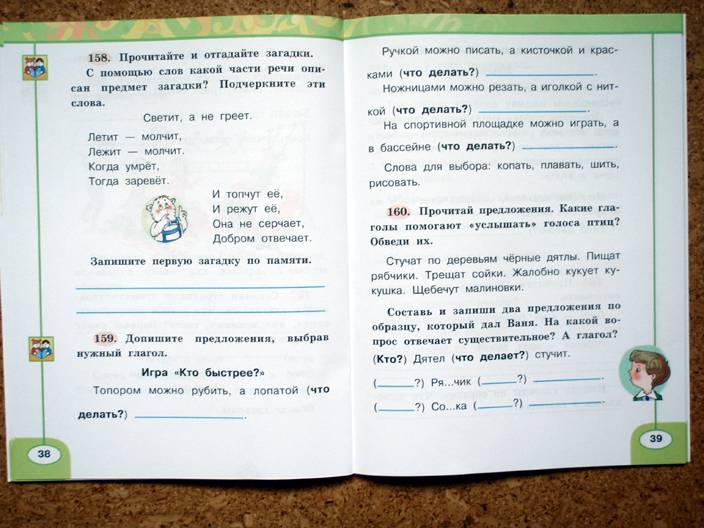 158. Прочитайте и отгадайте загадки.
С помощью слов какой части речи опи-
сан предмет загадки? Подчеркните эти
слова.
Светит, а не греет.
Летит — молчит,
Лежит — молчит.
Когда умрёт,
Тогда заревёт.
И топчут её,
И режут её,
Она не серчает,
Добром отвечает.
Запишите первую загадку по памяти.
159. Допишите предложения, выбрав
нужный глагол.
Игра «Кто быстрее?»
Топором можно рубить, а лопатой (что
делать?) ______.
38
Ручкой можно писать, а кисточкой и крас-
ками (что делать?) ______.
Ножницами можно резать, а иголкой с нит-
кой (что делать?) ______.
На спортивной площадке можно играть, а
в бассейне (что делать?) ______.
Слова для выбора: копать, плавать, шить,
рисовать.
160. Прочитай предложения. Какие гла-
голы помогают "услышать" голоса птиц?
Обведи их.
Стучат по деревьям чёрные дятлы. Пищат
рябчики. Трещат сойки. Жалобно кукует ку-
кушка. Щебечут малиновки.
Составь и запиши два предложения по
образцу, который дал Ваня. На какой во-
прос отвечает существительное? А глагол?
(Кто?) Дятел (что делает?) стучит.
(______?) Ря...чик (______?) ______.
(______?) Со...ка (______?) ______.
39